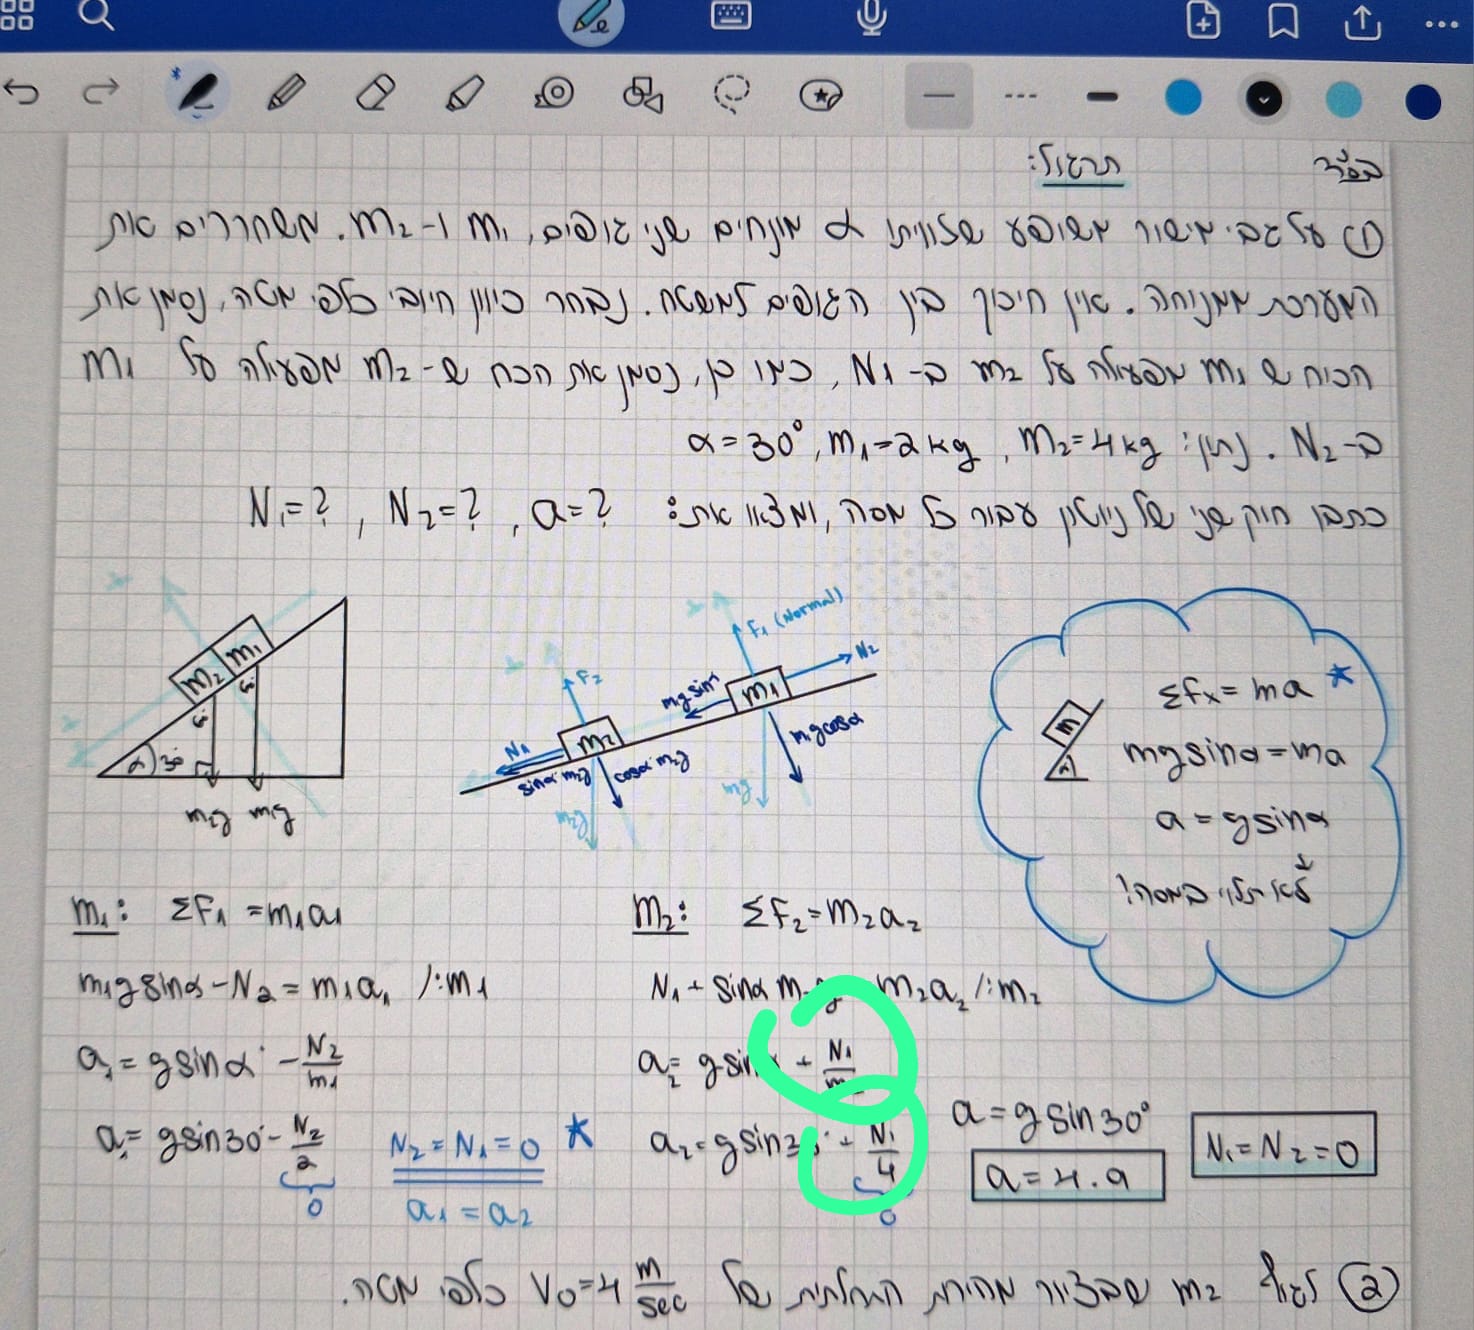 בס״ד
תרגול:
① על גבי מישור משופע שזוויתו α מונחים שני גופים, m₁ ו-m₂. משחררים את
המערכת ממנוחה. אין חיכוך בין הגופים למשטח. נבחר כיוון חיובי כלפי מטה, נסמן את
הכוח ש m₁ מפעילה על m₂ ב-N₁, כמו כן, נסמן את הכח ש-m₂ מפעילה על m₁
ב-N₂. נתון: α=30°, m₁=2kg, m₂=4kg
כתבו חוק שני של ניוטון עבור כל מסה, ומצאו את: N₁=?, N₂=?, a=?
m₂ m₁
α 30°
m₂g m₁g
F₂
m₂
N₁
sinα m₂g
cosα m₂g
m₂g
F₁ (Normal)
N₂
m₁
mg sinα
mg cosα
m₁g
m
α
ΣFx = ma *
mg sinα = ma
a = g sinα
לא תלוי במסה!
m₁: ΣF₁ = m₁a₁
m₁g sinα - N₂ = m₁a₁ /:m₁
a₁ = g sinα - N₂/m₁
a₁ = g sin30 - N₂/2
0
N₂ = N₁ = 0 *
a₁ = a₂
m₂: ΣF₂ = m₂a₂
N₁ + sinα m₂a₂ /:m₂
a₂ = g + N₁
a₂ = g + N₁/4
0
a = g sin30°
a = 4.9
N₁ = N₂ = 0
② לגוף m₂ שבציור מהירות התחלתית של V₀=4 m/sec כלפי מטה.